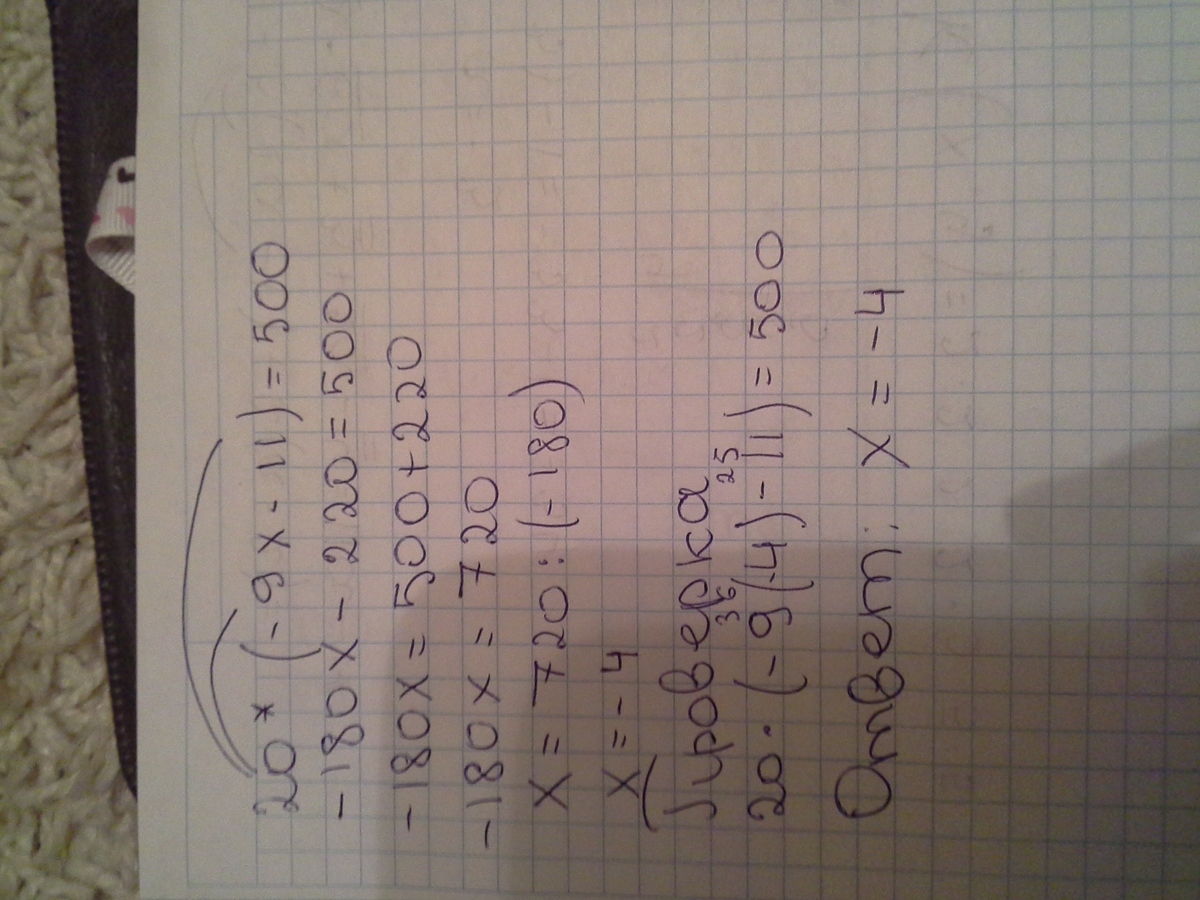 20* (-9x-11)=500
-180x-220=500
-180x=500+220
-180x=720
x=720:(-180)
x=-4
Проверка
36 25
20·(-9(-4)-11)=500
Ответ: x=-4